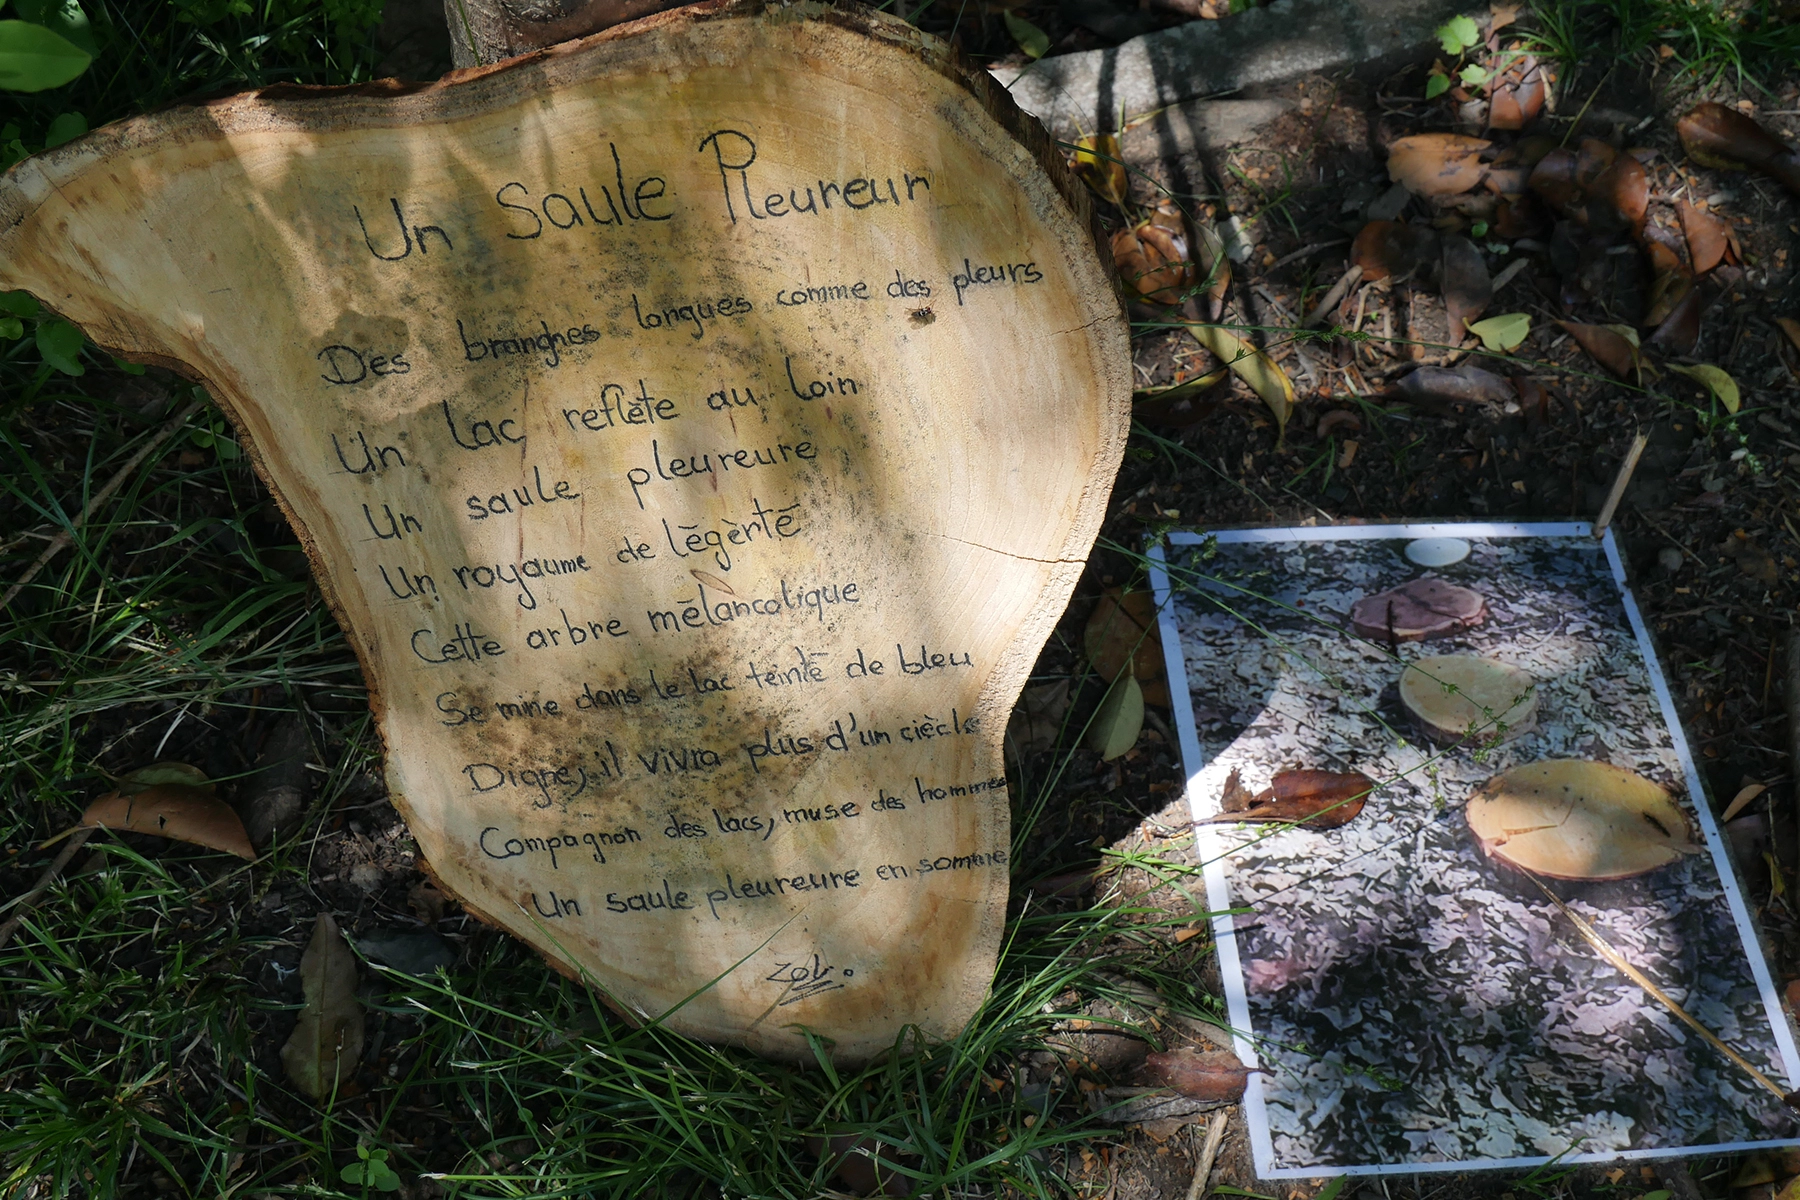 Un Saule Pleureur
Des branches longues comme des pleurs
Un lac reflète au loin
Un saule pleureure
Un royaume de légèrté
Cette arbre mélancolique
Se mire dans le lac teinté de bleu
Digne, il vivra plus d'un ciècle
Compagnon des lacs, muse des hommes
Un saule pleureure en somme